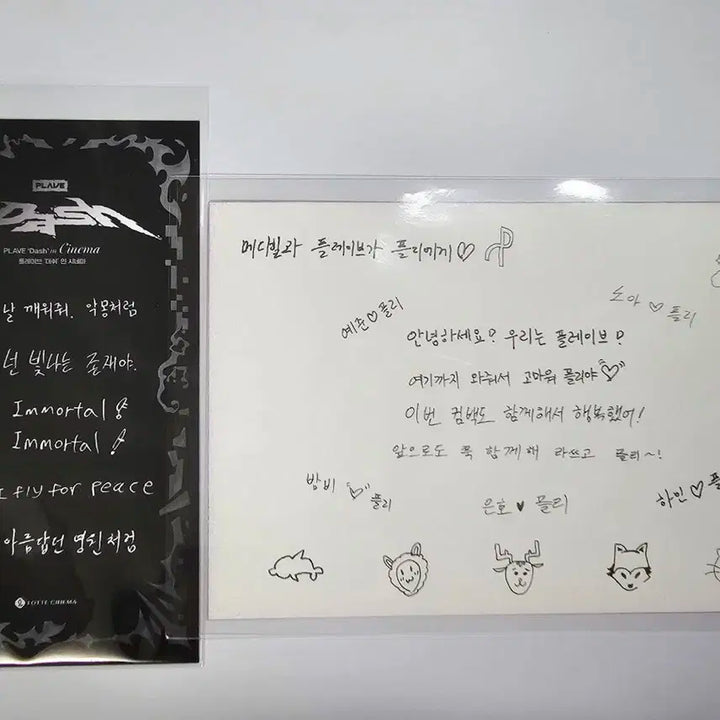 PLAVE
Dash
PLAVE 'Dash' in Cinema
플레이브 '대쉬' 인 시네마
날 깨워줘. 악몽처럼
넌 빛나는 존재야.
Immortal
Immortal
I fly for peace
아름답던 영원처럼
LOTTE CINEMA
메디빌라 플레이브가 플리에게♡
예준♡플리
노아♡플리
안녕하세요? 우리는 플레이브?
여기까지 와줘서 고마워 플리야♡
이번 컴백도 함께해서 행복했어!
앞으로도 쭉 함께해 라쓰고 플리~!
밤비♡플리
은호♥플리
하민♡플